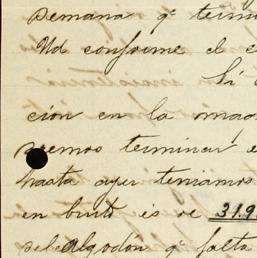 semana qe termi
Ud conforme el e
Si
ción en la maq
remos terminar e
hasta ayer teniamos
en bruto es de 31.9
del algodón qe falta